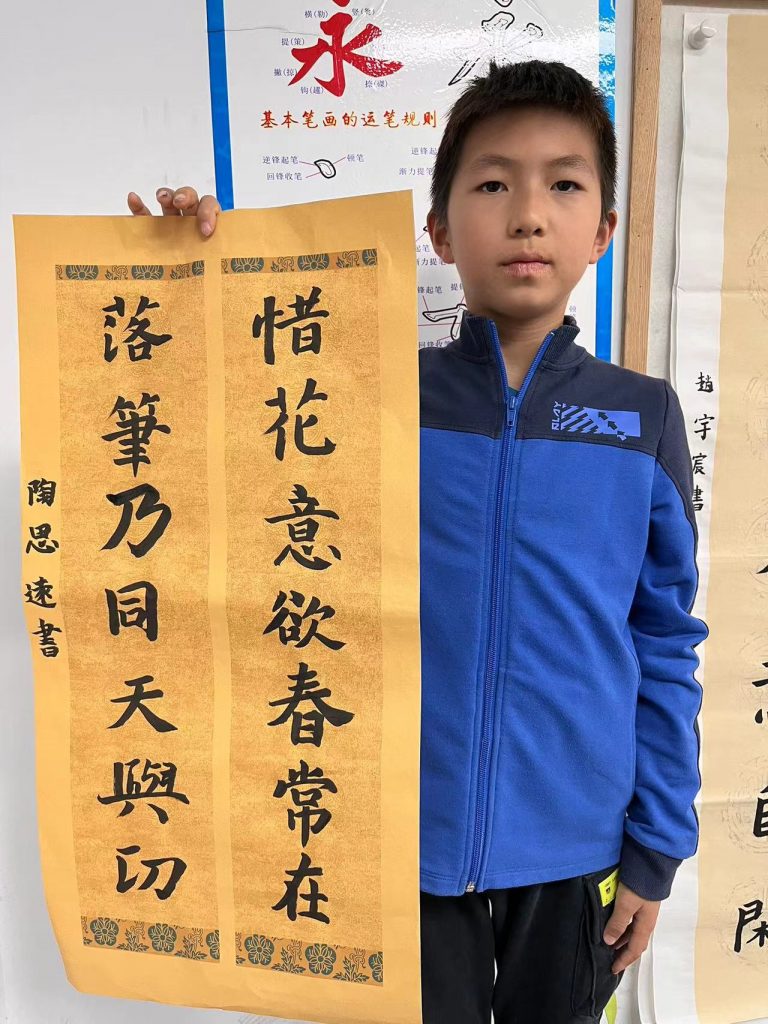 横(勒)
提(策)
撇(掠)
钩(趯)
捺(磔)
永
基本笔画的运笔规则
逆锋起笔 顿笔
回锋收笔
渐力提笔
惜花意欲春常在
落筆乃同天與
陶思速書
PLAY
趙宇宸書